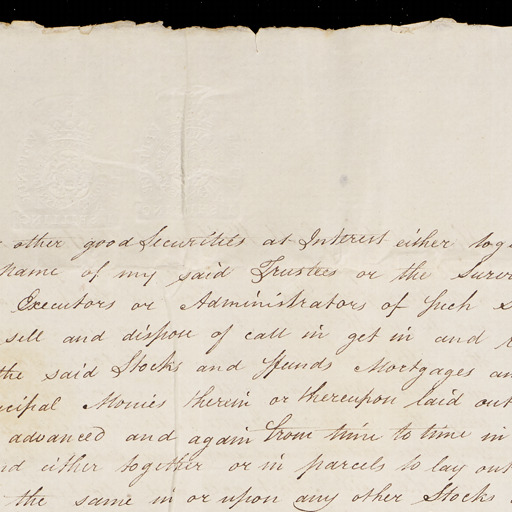 other good Securities at Interest either tog
name of my said Trustees or the Surv
Executors or Administrators of such
sell and dispose of call in get in and
the said Stocks and Funds Mortgages an
ncipal Monies therein or thereupon laid out
advanced and again from time to time in
nd either together or in parcels to lay out
the same in or upon any other Stocks